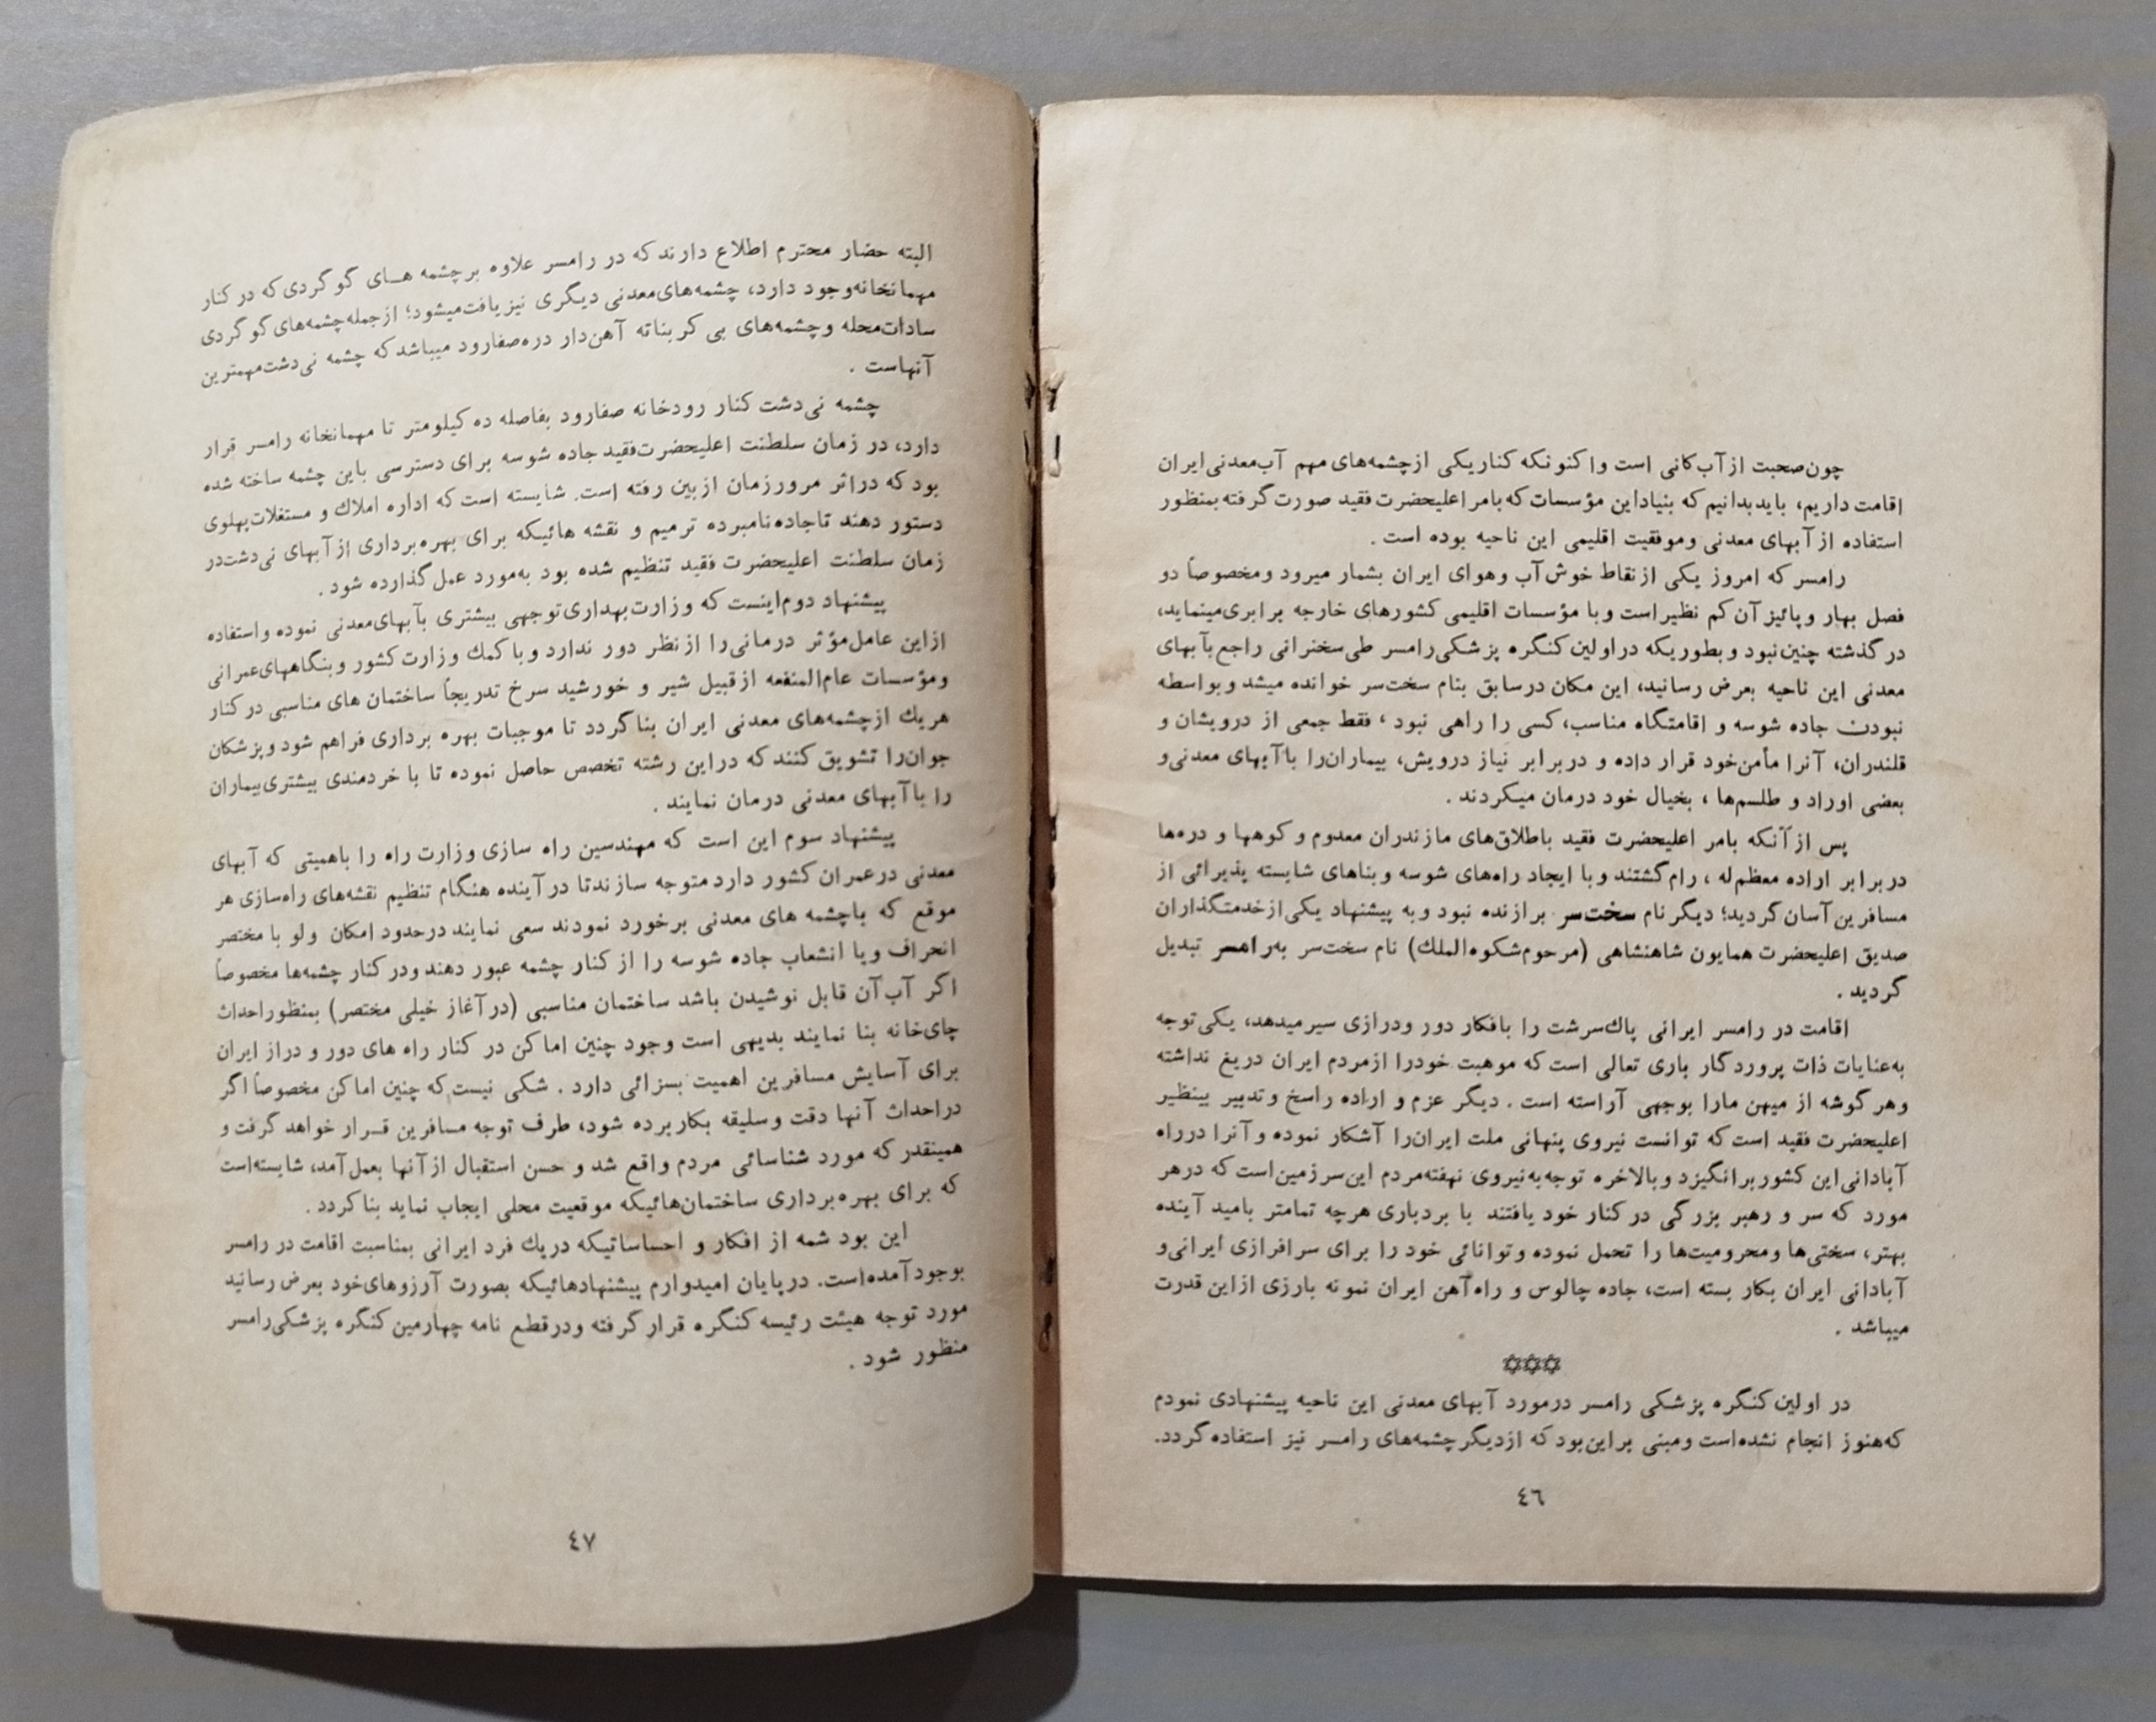 چون صحبت از آب کانی است و اکنونکه کنار یکی از چشمه‌های مهم آب معدنی ایران
اقامت داریم، باید بدانیم که بنیاد این مؤسسات که بامر اعلیحضرت فقید صورت گرفته بمنظور
استفاده از آبهای معدنی وموفقیت اقلیمی این ناحیه بوده است .
رامسر که امروز یکی از نقاط خوش آب وهوای ایران بشمار میرود ومخصوصاً دو
فصل بهار و پائیز آن کم نظیر است و با مؤسسات اقلیمی کشورهای خارجه برابری مینماید،
در گذشته چنین نبود و بطوریکه در اولین کنگره پزشکی رامسر طی سخنرانی راجع بآبهای
معدنی این ناحیه بعرض رسانید، این مکان در سابق بنام سخت‌سر خوانده میشد و بواسطه
نبودن جاده شوسه و اقامتگاه مناسب، کسی را راهی نبود ، فقط جمعی از درویشان و
قلندران، آنرا مأمن خود قرار داده و در برابر نیاز درویش، بیماران را با آبهای معدنی و
بعضی اوراد و طلسم‌ها ، بخیال خود درمان میکردند .
پس از آنکه بامر اعلیحضرت فقید باطلاق‌های مازندران معدوم و کوهها و دره‌ها
در برابر اراده معظم‌له ، رام گشتند و با ایجاد راه‌های شوسه و بناهای شایسته پذیرائی از
مسافرین آسان گردید؛ دیگر نام سخت‌سر برازنده نبود و به پیشنهاد یکی از خدمتگذاران
صدیق اعلیحضرت همایون شاهنشاهی (مرحوم شکوه‌الملك) نام سخت‌سر به رامسر تبدیل
گردید .
اقامت در رامسر ایرانی پاك‌سرشت را بافکار دور ودرازی سیر میدهد، یکی توجه
به عنایات ذات پروردگار باری تعالی است که موهبت خودرا از مردم ایران دریغ نداشته
وهر گوشه از میهن مارا بوجهی آراسته است . دیگر عزم و اراده راسخ و تدبیر بینظیر
اعلیحضرت فقید است که توانست نیروی پنهانی ملت ایران‌را آشکار نموده و آنرا در راه
آبادانی این کشور برانگیزد و بالاخره توجه به نیروی نهفته مردم این سرزمین است که در هر
مورد که سر و رهبر بزرگی در کنار خود یافتند با بردباری هرچه تمامتر بامید آینده
بهتر، سختی‌ها و محرومیت‌ها را تحمل نموده و توانائی خود را برای سرافرازی ایرانی و
آبادانی ایران بکار بسته است، جاده چالوس و راه‌آهن ایران نمونه بارزی از این قدرت
میباشد .
✡✡✡
در اولین کنگره پزشکی رامسر در مورد آبهای معدنی این ناحیه پیشنهادی نمودم
که هنوز انجام نشده‌است و مبنی بر این بود که از دیگر چشمه‌های رامسر نیز استفاده گردد.
٤٦
البته حضار محترم اطلاع دارند که در رامسر علاوه بر چشمه هــای گوگردی که در کنار
مهمانخانه وجود دارد، چشمه‌های معدنی دیگری نیز یافت میشود؛ از جمله چشمه‌های گوگردی
سادات محله و چشمه‌های بی کربناته آهن‌دار دره صفارود میباشد که چشمه نی‌دشت مهمترین
آنهاست .
چشمه نی‌دشت کنار رودخانه صفارود بفاصله ده کیلومتر تا مهمانخانه رامسر قرار
دارد، در زمان سلطنت اعلیحضرت فقید جاده شوسه برای دسترسی باین چشمه ساخته شده
بود که در اثر مرور زمان از بین رفته است. شایسته است که اداره املاك و مستغلات پهلوی
دستور دهند تا جاده نامبرده ترمیم و نقشه هائیکه برای بهره برداری از آبهای نی‌دشت در
زمان سلطنت اعلیحضرت فقید تنظیم شده بود به‌مورد عمل گذارده شود .
پیشنهاد دوم اینست که وزارت بهداری توجهی بیشتری بآبهای معدنی نموده و استفاده
از این عامل مؤثر درمانی را از نظر دور ندارد و با کمك وزارت کشور و بنگاههای عمرانی
و مؤسسات عام‌المنفعه از قبیل شیر و خورشید سرخ تدریجاً ساختمان های مناسبی در کنار
هریك از چشمه‌های معدنی ایران بنا گردد تا موجبات بهره برداری فراهم شود و پزشکان
جوان‌را تشویق کنند که در این رشته تخصص حاصل نموده تا با خردمندی بیشتری بیماران
را با آبهای معدنی درمان نمایند .
پیشنهاد سوم این است که مهندسین راه سازی وزارت راه را باهمیتی که آبهای
معدنی در عمران کشور دارد متوجه سازند تا در آینده هنگام تنظیم نقشه‌های راه‌سازی هر
موقع که با چشمه های معدنی برخورد نمودند سعی نمایند در حدود امکان ولو با مختصر
انحراف و یا انشعاب جاده شوسه را از کنار چشمه عبور دهند ودر کنار چشمه‌ها مخصوصاً
اگر آب آن قابل نوشیدن باشد ساختمان مناسبی (در آغاز خیلی مختصر) بمنظور احداث
چای‌خانه بنا نمایند بدیهی است وجود چنین اماکن در کنار راه های دور و دراز ایران
برای آسایش مسافرین اهمیت بسزائی دارد . شکی نیست که چنین اماکن مخصوصاً اگر
در احداث آنها دقت وسلیقه بکار برده شود، طرف توجه مسافرین قــرار خواهد گرفت و
همینقدر که مورد شناسائی مردم واقع شد و حسن استقبال از آنها بعمل آمد، شایسته‌است
که برای بهره‌برداری ساختمان‌هائیکه موقعیت محلی ایجاب نماید بنا کردد .
این بود شمه از افکار و احساساتیکه در یك فرد ایرانی بمناسبت اقامت در رامسر
بوجود آمده‌است. در پایان امیدوارم پیشنهادهائیکه بصورت آرزوهای خود بعرض رسانید
مورد توجه هیئت رئیسه کنگره قرار گرفته ودر قطع نامه چهارمین کنگره پزشکی رامسر
منظور شود .
٤٧